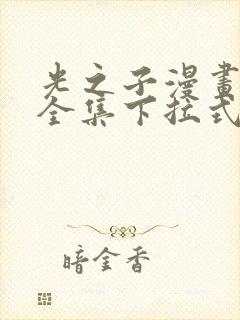 光之子漫畫
全集下拉式
暗金香